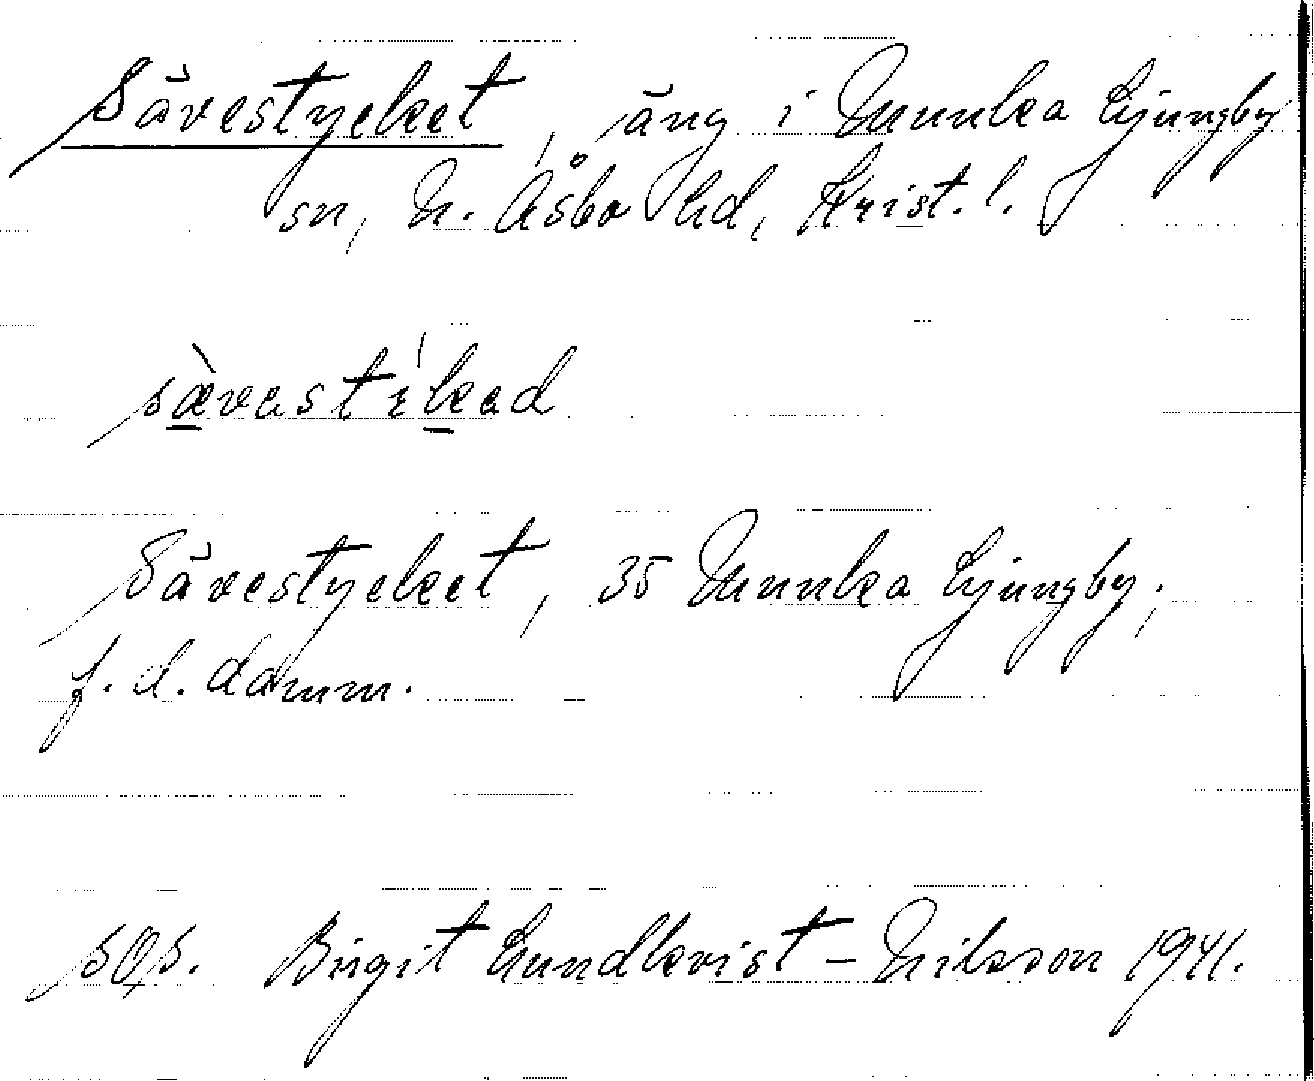 Sävestycket, äng i Munka Ljungby
sn, N. Åsbo hd, Krist. l.
sävastikad
Sävestycket, 35 Munka Ljungby;
f. d. damm.
Birgit Lundkvist-Nilsson 1941.